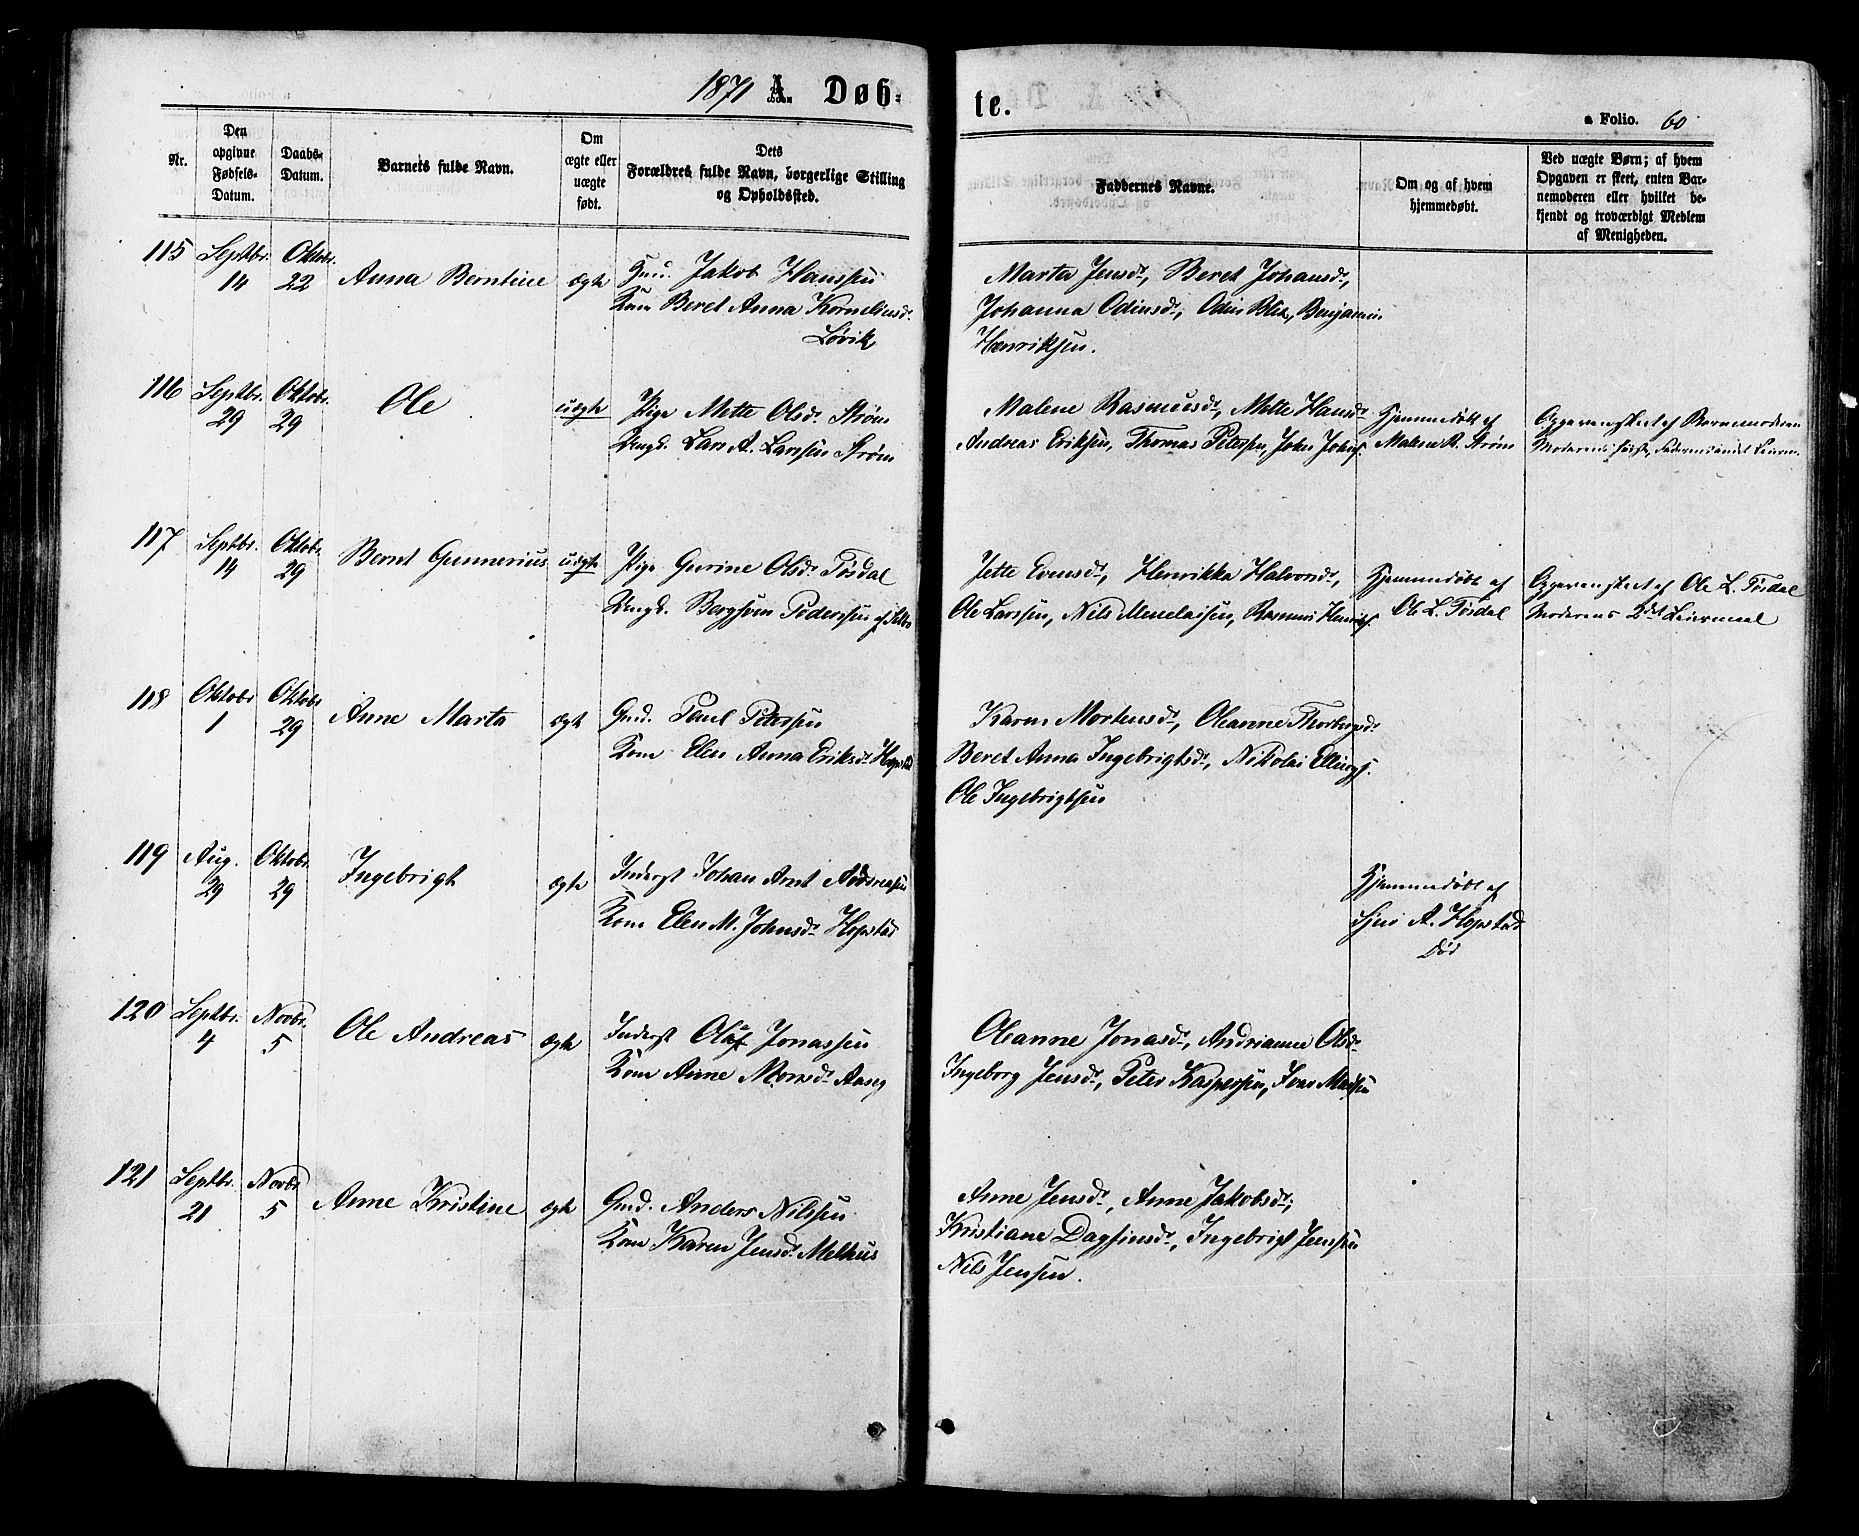 1871 A. Døb-
te.
a Folio. 60
Nr.
Den opgivne Fødsels-Datum.
Daabs-Datum.
Barnets fulde Navn.
Om ægte eller uægte født.
Dets Forældres fulde Navn, borgerlige Stilling og Opholdssted.
Faddernes Navne.
Om og af hvem hjemmedøbt.
Ved uægte Børn; af hvem Opgaven er skeet, enten Barnemoderen eller hvilket bekjendt og troværdigt Medlem af Menigheden.
115 Septbr. 14 Oktobr. 22 Anna Berntine ægte
Gmd. Jakob Hanssen
Kone Beret Anna Kornelinsdr.
Løvik
Marta Jensdr, Beret Johansdr,
Johanna Odinsdr, Odin Blix, Benjamin
Henriksen.
116 Septbr. 29 Oktobr. 29 Ole uægte
Pige Mette Olsdr Strøm
Ungk. Lars A. Larssen Strøm
Malene Rasmusdr, Mette Hansdr
Andreas Eriksen, Thomas Petersen, John Johns.
Hjemmedøbt af
Malene R. Strøm
Opgaven skeet af Barnemoderen
Moderens første, Faderens andet Leierm.
117 Septbr. 14 Oktobr. 29 Bernt Gunnerius uægte
Pige Gurine Olsdr Tøsdal
Ungk. Bergsven Pederssen af Selbo
Jette Evensdr, Henrikka Halvorsdr,
Ole Larssen, Nils Menelaisen, Rasmus Henriks.
Hjemmedøbt af
Ole L. Tøsdal
Opgaven skeet af Ole L. Tøsdal
Moderens 2det Leiermaal
118 Oktobr 1 Oktobr 29 Anne Marta ægte
Gmd. Paul Petersen
Kone Elen Anna Eriksdr Hopstad
Karen Mortensdr, Oleanne Thorbergsdr
Beret Anna Ingebrigtsdr, Nikolai Ellings.
Ole Ingebrigtsen
119 Aug. 29 Oktobr. 29 Ingebrigt ægte
Inderst Johan Arnt Andreasen
Kone Elen M. Johnsdr Hopstad
Hjemmedøbt af
A. Hopstad
Død
120 Septbr. 4 Novbr. 5 Ole Andreas ægte
Inderst Oluf Jonassen
Kone Anne Monsdr Aaseg
Oleanne Jonasdr, Andrianne Olsdr
Ingeborg Jensdr, Peter Kaspersen, Iver Madsen
121 Septbr. 21 Novbr 5 Anne Kristine ægte
Gmd. Anders Nilssen
Kone Karen Jensdr Melhus
Anne Jensdr, Anne Jakobsdr,
Kristiane Dagfinsdr, Ingebrigt Jenssen
Nils Jenssen.